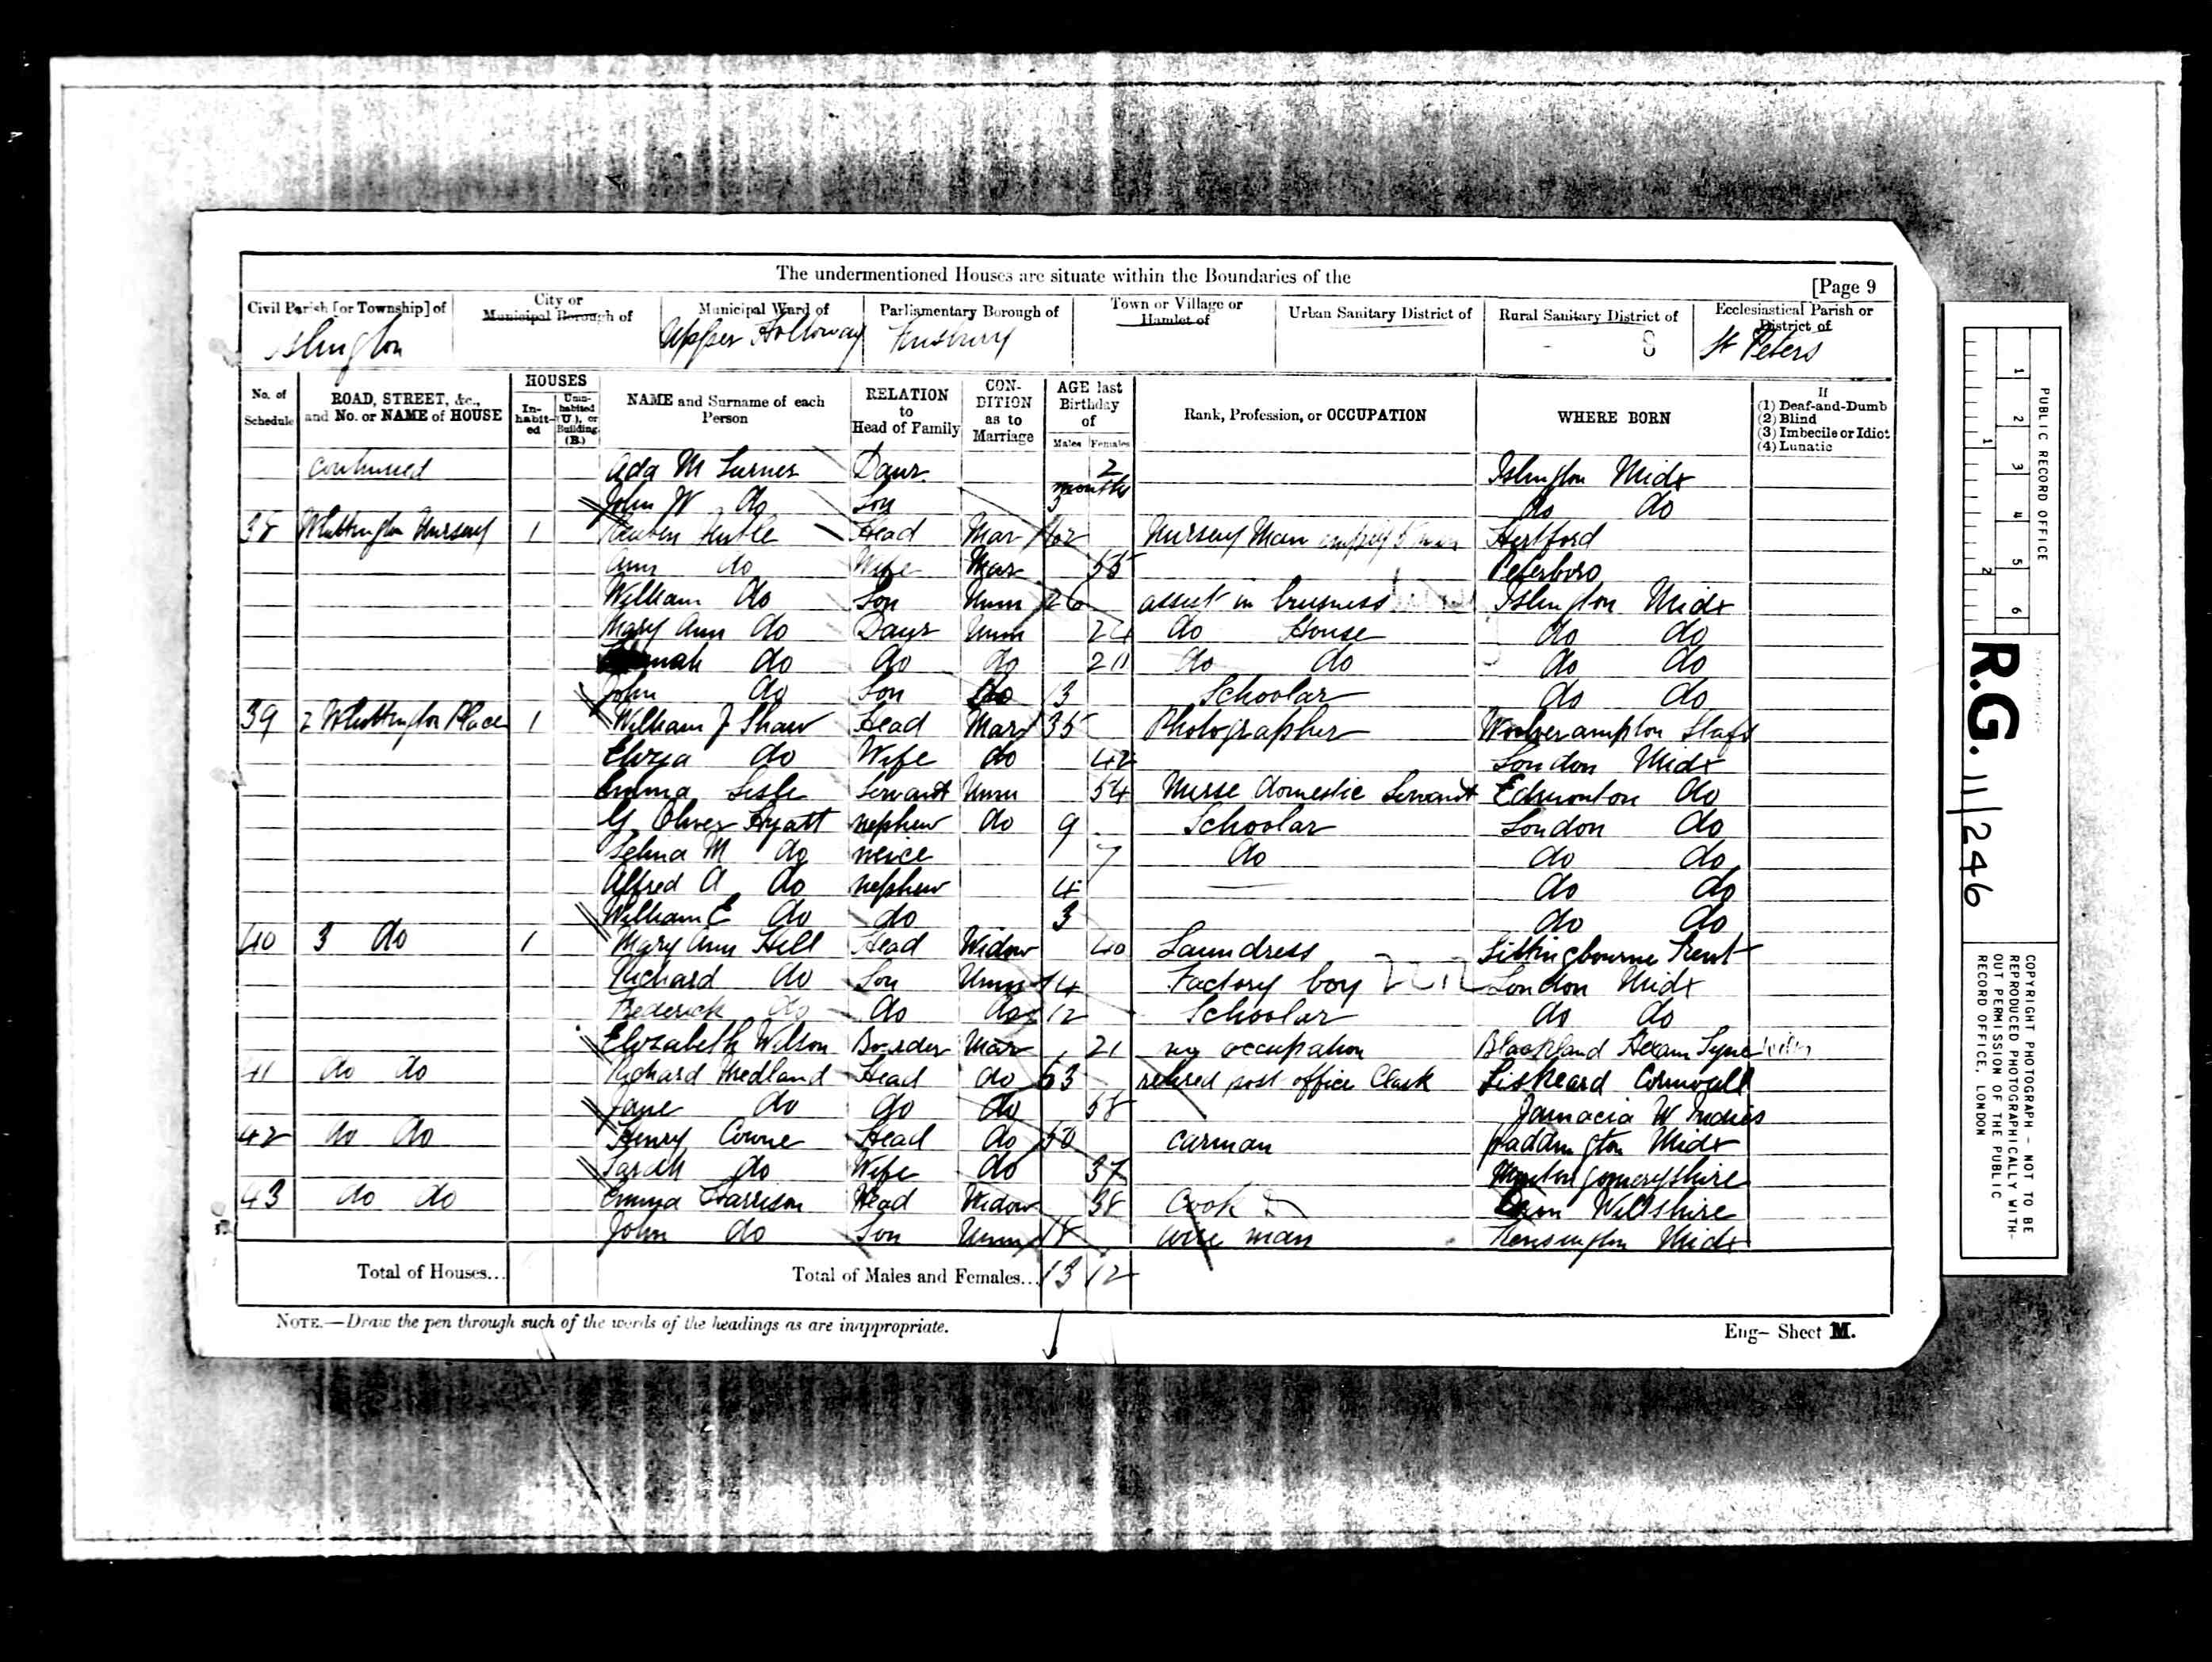 The undermentioned Houses are situate within the Boundaries of the
[Page 9
Civil Parish [or Township] of
Islington
City or Municipal Borough of
Municipal Ward of
Upper Holloway
Parliamentary Borough of
Finsbury
Town or Village or Hamlet of
Urban Sanitary District of
Rural Sanitary District of
8
Ecclesiastical Parish or District of
St Peters
No. of Schedule
ROAD, STREET, &c., and No. or NAME of HOUSE
HOUSES
In-habit-ed
Unin-habited (U), or Building (B.)
NAME and Surname of each Person
RELATION to Head of Family
CON-DITION as to Marriage
AGE last Birthday of
Males Females
Rank, Profession, or OCCUPATION
WHERE BORN
If
(1) Deaf-and-Dumb
(2) Blind
(3) Imbecile or Idiot
(4) Lunatic
continued Ada M Daur 2 months Islington Midx
John W do Son 3 do do
38 Whittington Nursery 1 Reuben Head Mar 62 Nursery Man Hertford
Ann do Wife Mar 55 Peterboro
William do Son Unm 26 assist in business Islington Midx
Mary Ann do Daur Unm 24 do House do do
do do do do do do do
John do Son do 13 Schoolar do do
39 2 Whittington Place 1 William J Shaw Head Mar 35 Photographer Woolverampton Staf
Eliza do Wife do 42 London Midx
Emma Servant Unm 54 Nurse domestic Servant Edmonton do
G Oliver Hyatt nephew do 9 Schoolar London do
Selina M do neice 7 do do do
Alfred A do nephew 4 do do
William E do do 3 do do
40 3 do 1 Mary Ann Hill Head Widow 40 Laundress Sittingbourne Kent
Richard do Son Unm 14 Factory boy London Midx
Frederick do do do 12 Schoolar do do
Elizabeth Wilson Boarder Mar 21 no occupation
41 do do Richard Medland Head do 63 retired post office Clark Liskeard Cornwall
Jane do do do 58 Jamacia W Indies
42 do do Henry Cowne Head do 50 carman Paddington Midx
Sarah do Wife do 37 Montgomeryshire
43 do do Emma Harrison Head Widow 38 Cook Wiltshire
John do Son Unm 18 man Kensington Midx
Total of Houses...
Total of Males and Females... 13 12
NOTE.—Draw the pen through such of the words of the headings as are inappropriate.
Eng— Sheet M.
PUBLIC RECORD OFFICE
1 2 3 4 5 6
1 2
R.G. 11/246
COPYRIGHT PHOTOGRAPH – NOT TO BE
REPRODUCED PHOTOGRAPHICALLY WITH-
OUT PERMISSION OF THE PUBLIC
RECORD OFFICE, LONDON